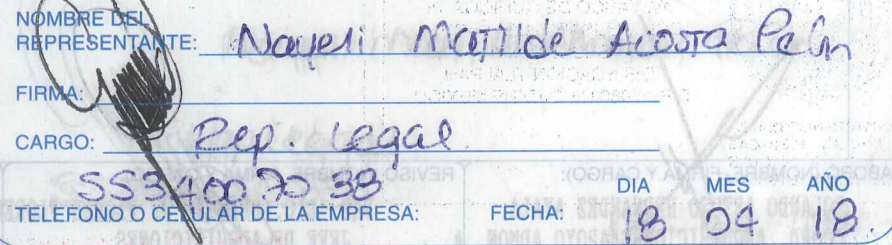 NOMBRE DEL
REPRESENTANTE: Nayeli Matilde Acosta
FIRMA:
CARGO: Rep. Legal
553400 70 38
TELEFONO O CELULAR DE LA EMPRESA:
FECHA: DIA MES AÑO
18 04 18.